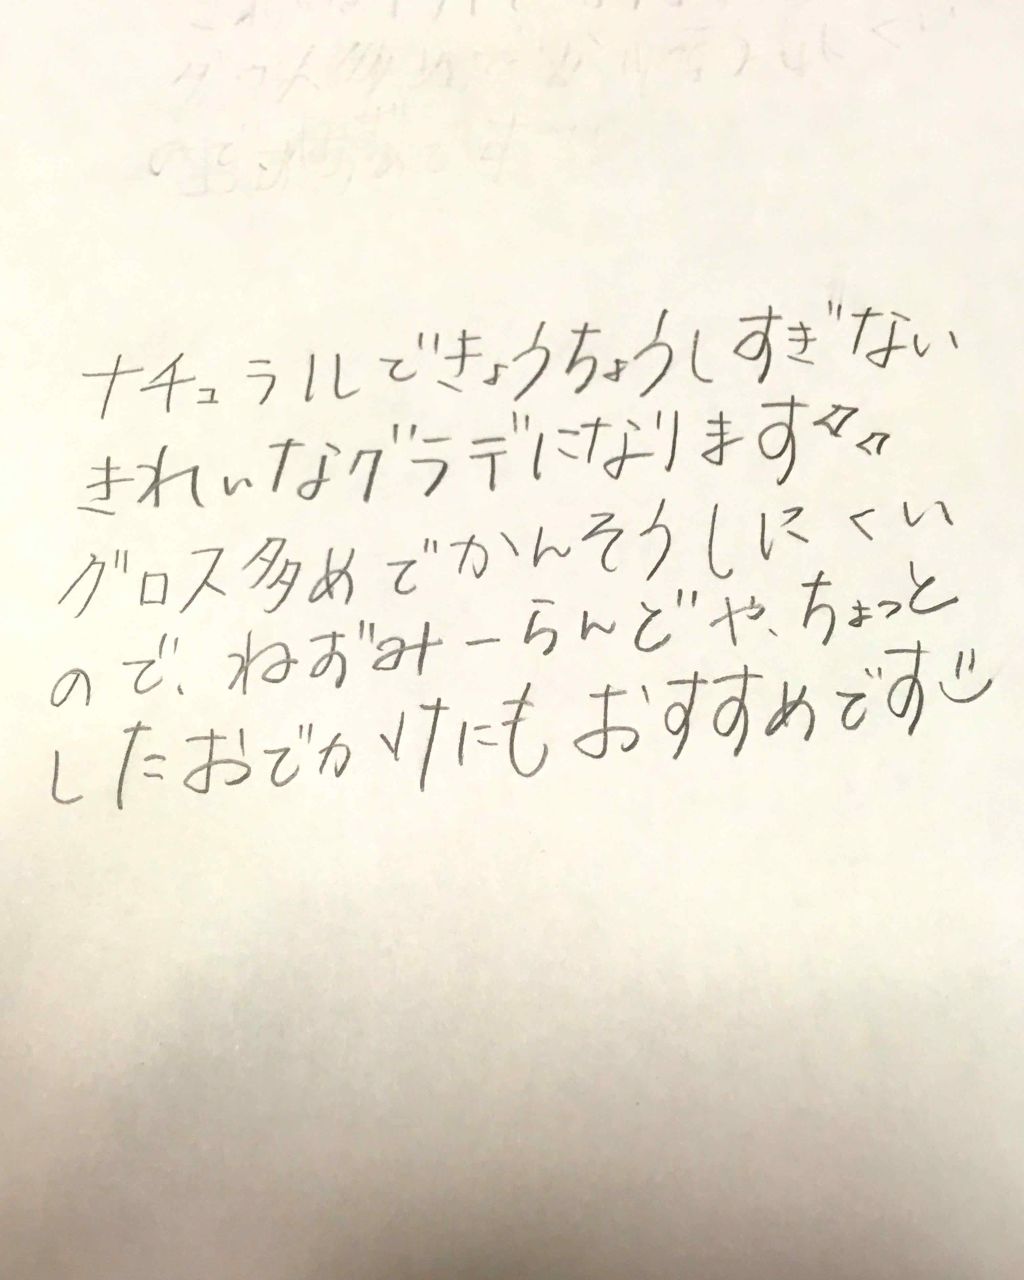 ナチュラルできょうちょうしすぎない
きれいなグラデになります
グロス多めでかんそうしにくい
ので、ねずみーらんどや、ちょっと
したおでかけにもおすすめです